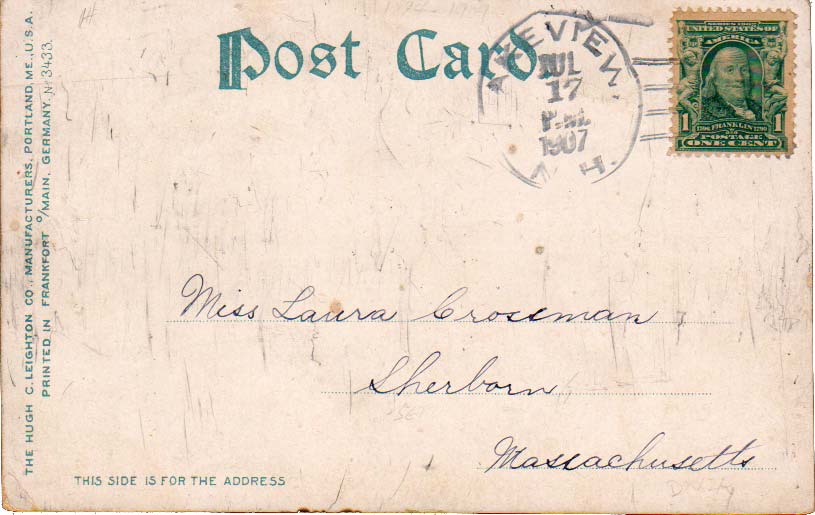 Post Card
LAKEVIEW,
JUL
17
P.M.
1907
N.H.
SERIES 1902
UNITED STATES OF
AMERICA
1 1
FRANKLIN
POSTAGE
ONE CENT
Miss Laura Crossman
Sherborn
Massachusetts
THIS SIDE IS FOR THE ADDRESS
THE HUGH C. LEIGHTON CO., MANUFACTURERS, PORTLAND, ME., U.S.A.
PRINTED IN FRANKFORT o/MAIN, GERMANY. No 3433.